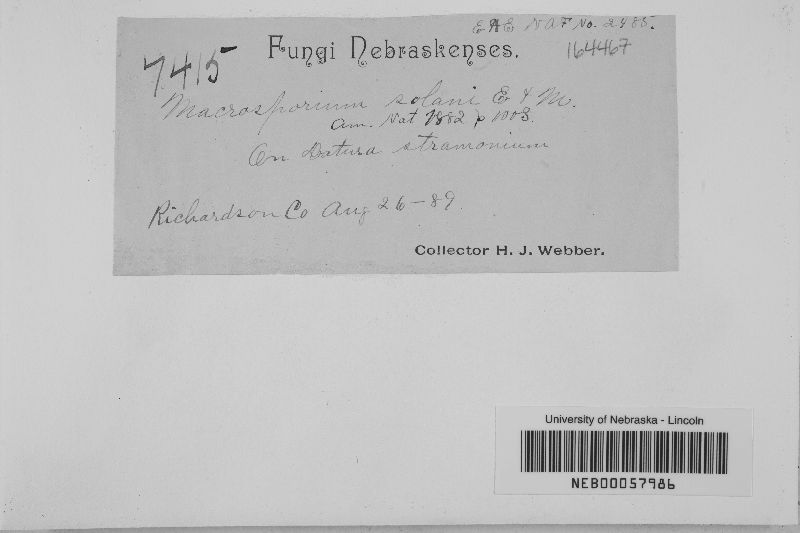 E & E N A F No. 2485.
7415
Fungi Nebraskenses.
164467
Macrosporium solani E & M.
Am. Nat 1882 p 1003.
On Datura stramonium
Richardson Co Aug 26-89.
Collector H. J. Webber.
University of Nebraska - Lincoln
NEB00057986